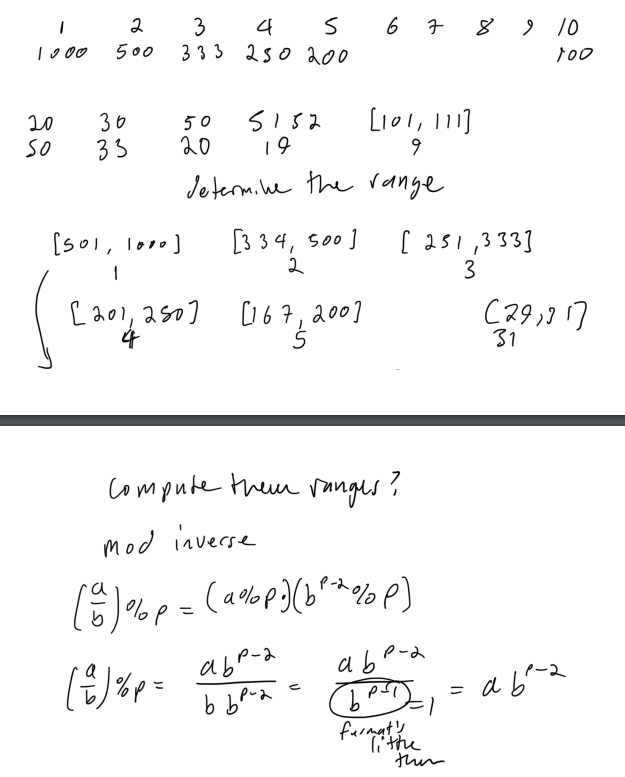 1 2 3 4 5 6 7 8 9 10
1000 500 333 250 200 100
20 30 50 51 52 [101, 111]
50 33 20 19 9
determine the range
[501, 1000] [334, 500] [251, 333]
1 2 3
[201, 250] [167, 200] [29, 31]
4 5 31
compute them ranges?
mod inverse
(a/b)%p = (a%p·)(b^p-2%p)
(a/b)%p = ab^p-2 / b b^p-2 = ab^p-2 / b^p-1 = 1 = ab^p-2
fermat's
little
thm